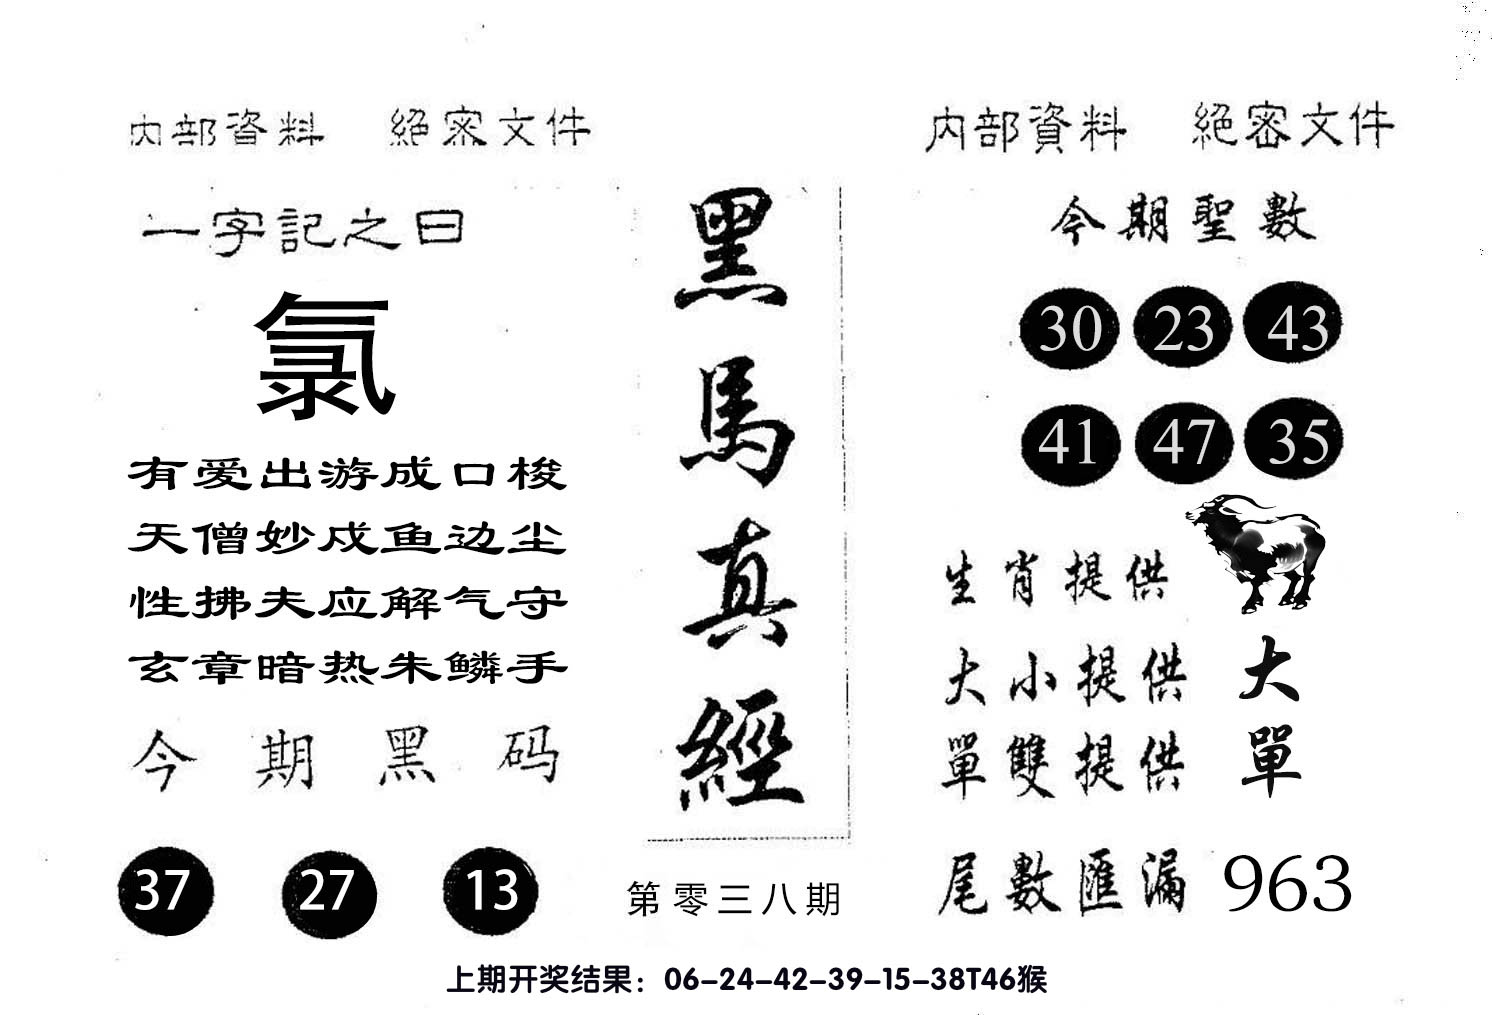 內部資料 絕密文件
一字記之曰
氯
有爱出游成口梭
天僧妙戍鱼边尘
性拂夫应解气守
玄章暗热朱鳞手
今期黑码
37 27 13
黑馬真經
第零三八期
內部資料 絕密文件
今期聖數
30 23 43
41 47 35
生肖提供
大小提供 大
單雙提供 單
尾數匯漏 963
上期开奖结果：06-24-42-39-15-38T46猴